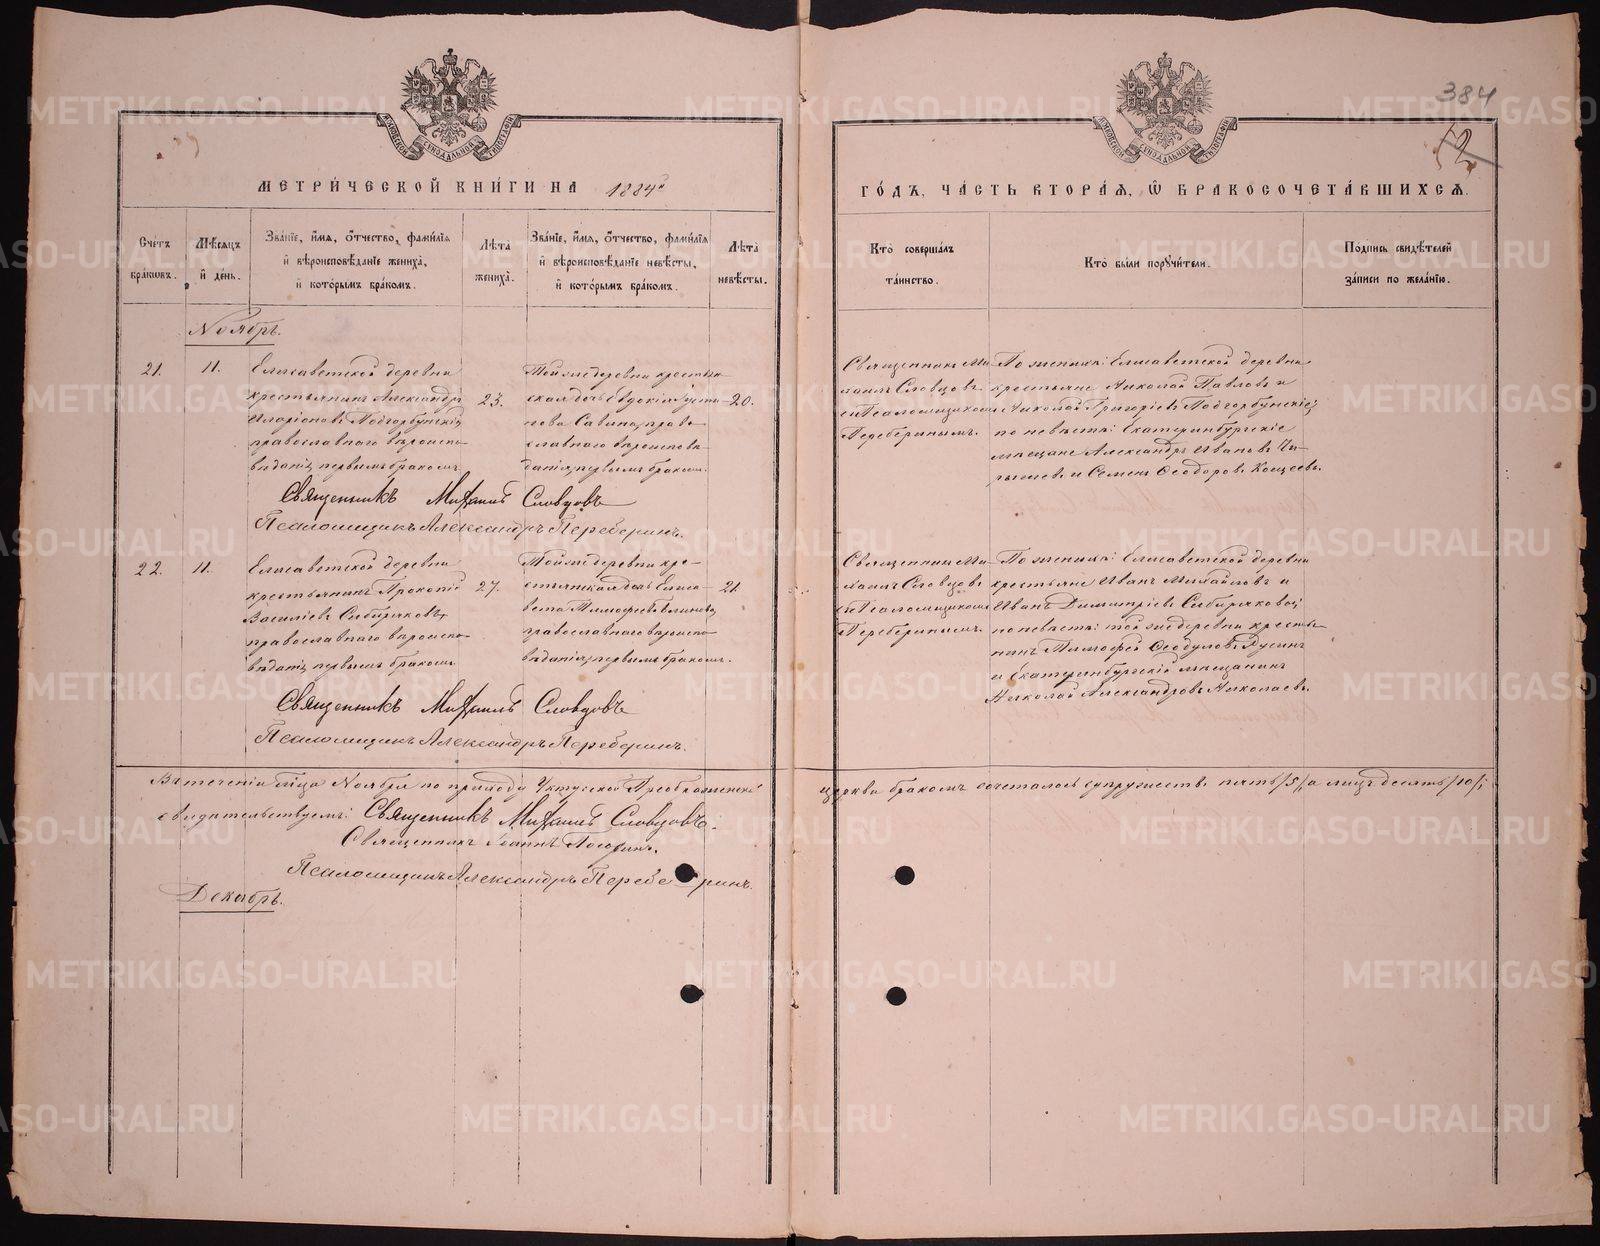 384
52
МЕТРИЧЕСКОЙ КНИГИ НА 1884й
ГОДЪ, ЧАСТЬ ВТОРАЯ, Ѡ БРАКОСОЧЕТАВШИХСЯ.
Счетъ браковъ.
Мѣсяцъ и день.
Званіе, имя, отчество, фамилія
и вѣроисповѣданіе жениха,
и которымъ бракомъ.
Лѣта жениха.
Званіе, имя, отчество, фамилія
и вѣроисповѣданіе невѣсты,
и которымъ бракомъ.
Лѣта невѣсты.
Кто совершалъ
таинство.
Кто были поручители.
Подпись свидѣтелей
записи по желанію.
Ноябрь.
21.
11.
Елисаветской деревни
крестьянинъ Александръ
Иларіоновъ Подгорбунскій,
православнаго вѣроиспо-
вѣданія, первымъ бракомъ
23.
Той же деревни крестьян-
ская дочь Евдокія
Савина, право-
славнаго вѣроиспов-
данія, первымъ бракомъ.
20.
Священникъ Ми-
хаилъ Словцовъ
съ Псаломщикомъ
Переберинымъ.
По женихѣ: Елисаветской деревни
крестьяне Николай Павловъ и
Николай Григорьевъ Подгорбунскіе;
по невѣстѣ: Екатеринбургскіе
мѣщане Александръ Ивановъ
и Семенъ Ѳеодоровъ Кощеевъ.
Священникъ Михаилъ Словцовъ
Псаломщикъ Александръ Переберинъ.
22.
11.
Елисаветской деревни
крестьянинъ Прокопій
Василіевъ Сибиряковъ,
православнаго вѣроиспо-
вѣданія, первымъ бракомъ
27.
Той же деревни кре-
стьянская дочь Елиса-
вета Тимофеева
православнаго вѣроиспо-
вѣданія, первымъ бракомъ.
21.
Священникъ Ми-
хаилъ Словцовъ
съ Псаломщикомъ
Переберинымъ.
По женихѣ: Елисаветской деревни
крестьяне Иванъ Михайловъ и
Иванъ Димитріевъ Сибиряковы;
по невѣстѣ: той же деревни кресть-
нинъ Тимофей Ѳеодуловъ
и Екатеринбургскій мѣщанинъ
Николай Александровъ Николаевъ.
Священникъ Михаилъ Словцовъ
Псаломщикъ Александръ Переберинъ.
Въ теченіи мѣсяца Ноября по приходу Уктусской Преображенской церкви бракомъ сочеталось супружествъ пять /5/, а лицъ десять /10/;
свидѣтельствуемъ: Священникъ Михаилъ Словцовъ.
Священникъ Іоаннъ
Псаломщикъ Александръ Переберинъ.
Декабрь.
METRIKI.GASO-URAL.RU